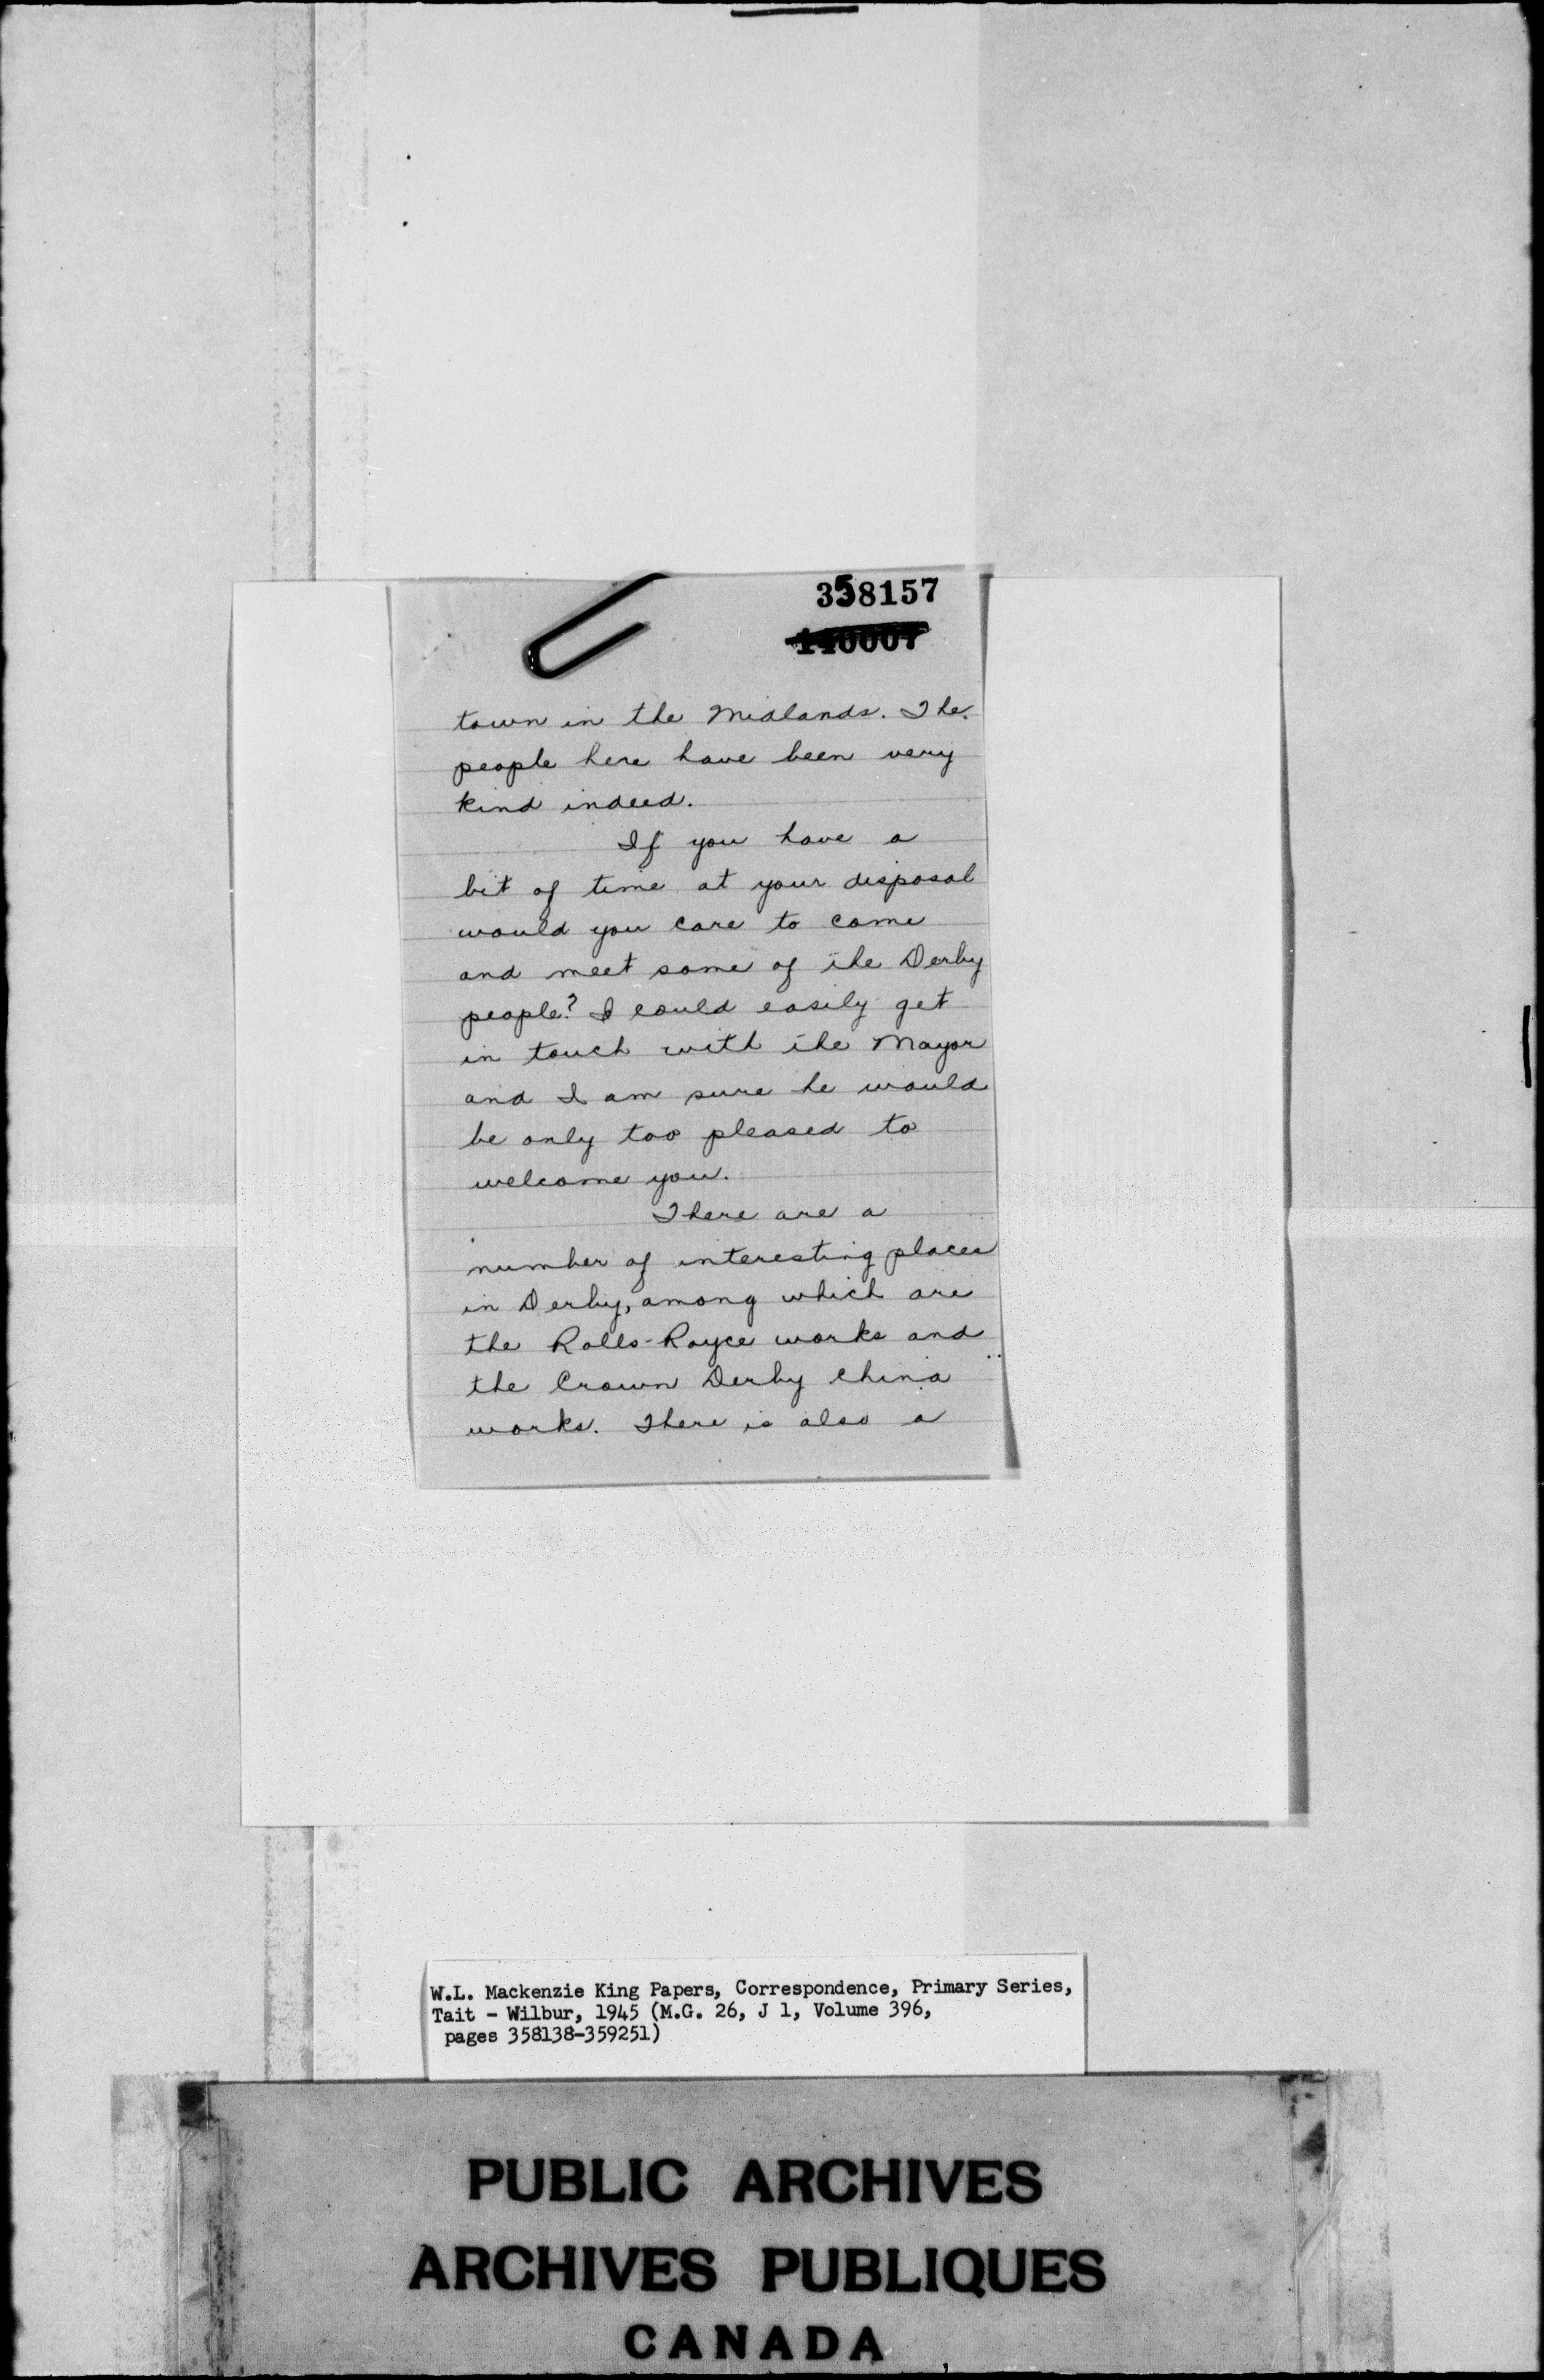 358157
140007
town in the Midlands. The
people here have been very
kind indeed.
If you have a
bit of time at your disposal
would you care to come
and meet some of the Derby
people? I could easily get
in touch with the Mayor
and I am sure he would
be only too pleased to
welcome you.
There are a
number of interesting places
in Derby, among which are
the Rolls-Royce works and
the Crown Derby china
works. There is also a
W.L. Mackenzie King Papers, Correspondence, Primary Series,
Tait - Wilbur, 1945 (M.G. 26, J 1, Volume 396,
pages 358138-359251)
PUBLIC ARCHIVES
ARCHIVES PUBLIQUES
CANADA